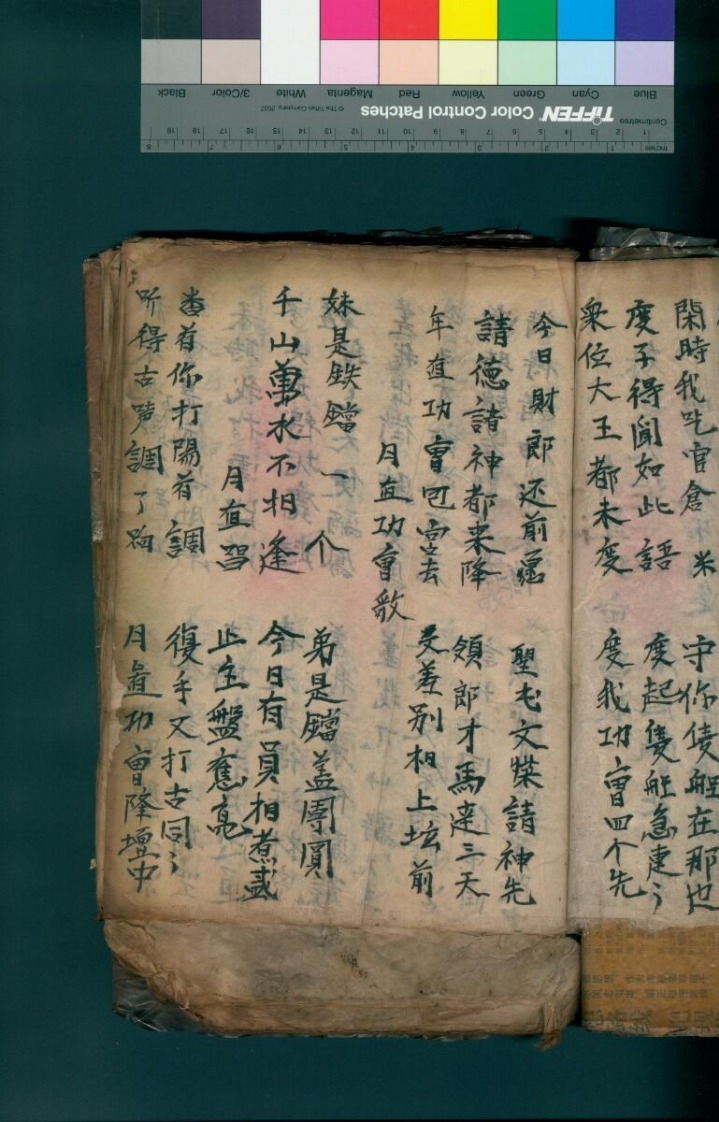 閑時我吃官倉米 守你隻船在那边
度子得闻如此語 度起隻船急速〻
衆位大王都未度 度我功曹四个先
今日財郎还前愿 聖七文牒請神先
請德諸神都来降 領郎才馬走三天
年直功曹回宫去 又差别相上坛前
月直功曹歌
妹是鉄鐺一个 弟是鐺盖團圓
千山萬水不相逢 今日有員相煮
月直
止主盤舊亮
番前你打陽前調 復手又打古同〻
听得古声調了 月直功曹降壇中
Inches
Centimetres
TIFFEN Color Control Patches
© The Tiffen Company, 2007
Blue Cyan Green Yellow Red Magenta White 3/Color Black